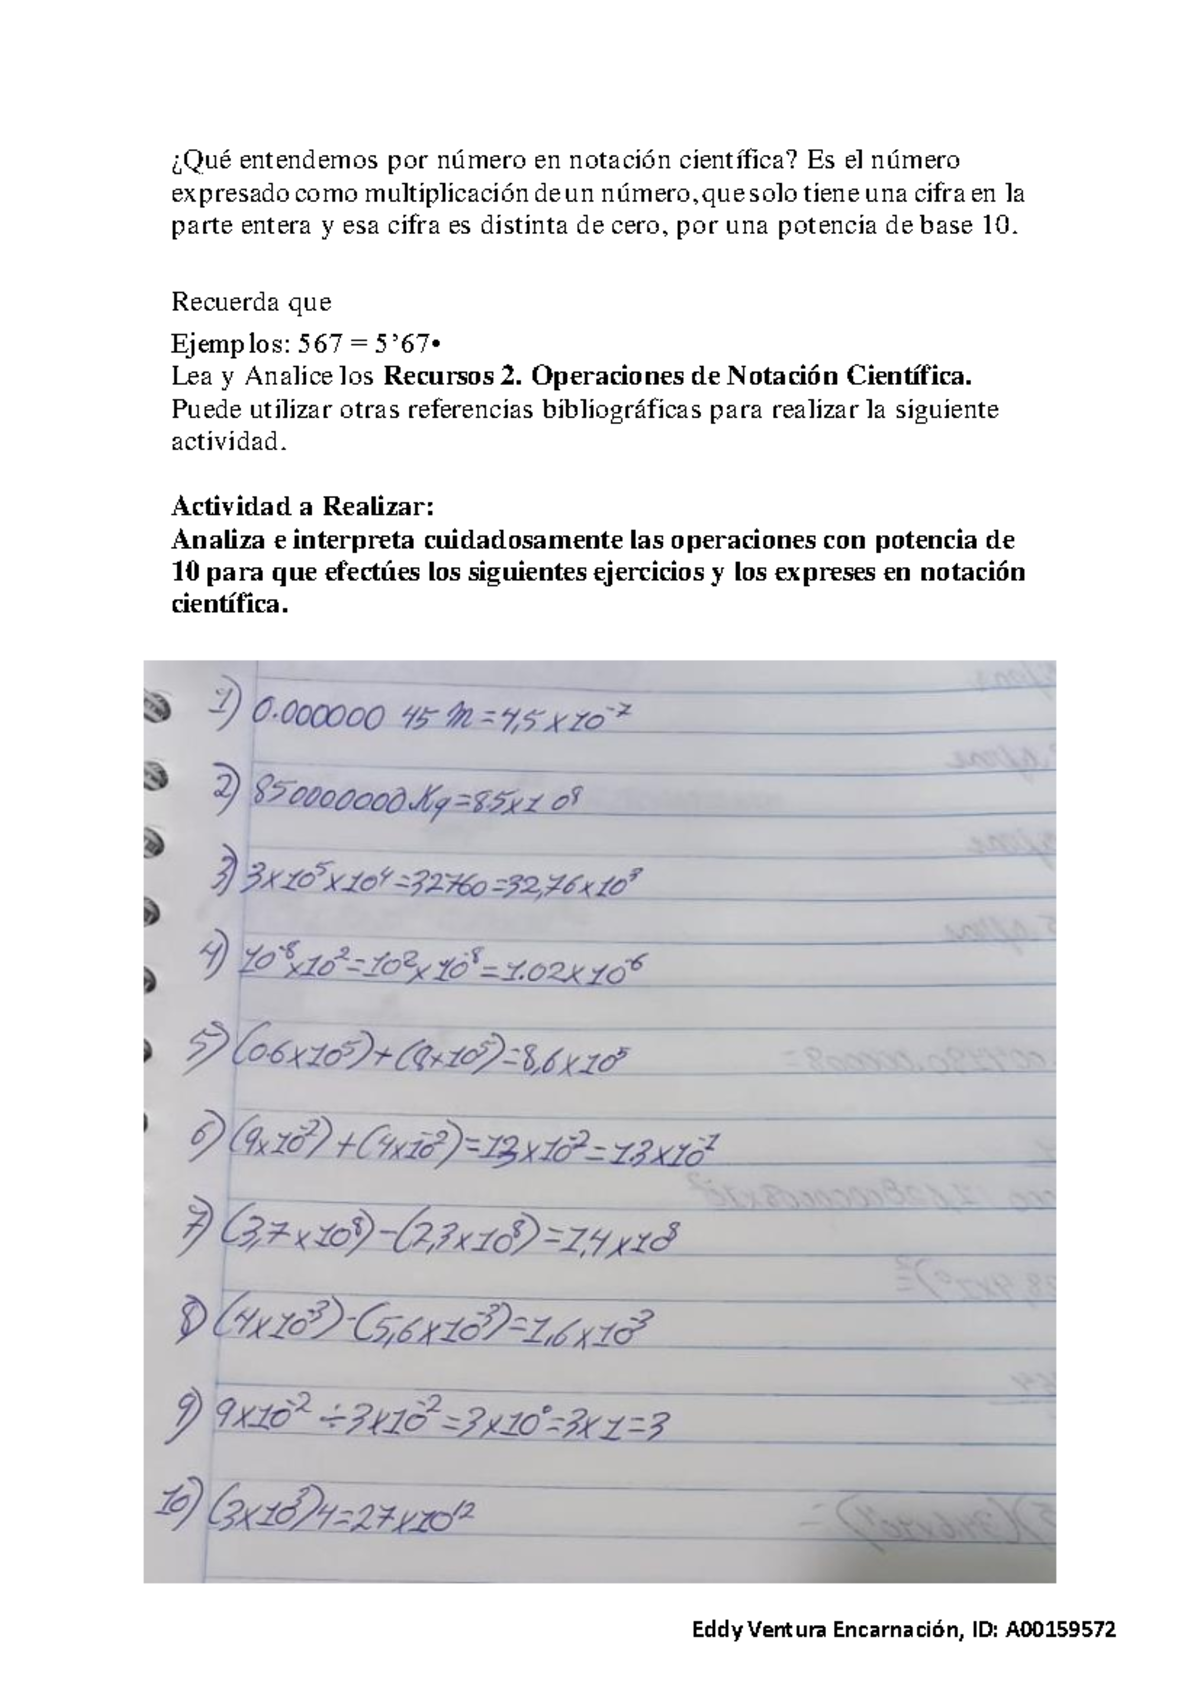 ¿Qué entendemos por número en notación científica? Es el número
expresado como multiplicación de un número, que solo tiene una cifra en la
parte entera y esa cifra es distinta de cero, por una potencia de base 10.
Recuerda que
Ejemplos: 567 = 5’67•
Lea y Analice los Recursos 2. Operaciones de Notación Científica.
Puede utilizar otras referencias bibliográficas para realizar la siguiente
actividad.
Actividad a Realizar:
Analiza e interpreta cuidadosamente las operaciones con potencia de
10 para que efectúes los siguientes ejercicios y los expreses en notación
científica.
1) 0.000000 45 m = 4,5 x 10⁻⁷
2) 850000000 Kg = 85 x 10⁸
3) 3 x 10⁵ x 10⁴ = 32760 = 32,76 x 10³
4) 10⁻⁸ x 10² = 10² x 10⁻⁸ = 1.02 x 10⁻⁶
5) (0.6 x 10⁵) + (8 x 10⁵) = 8,6 x 10⁵
6) (9 x 10⁻²) + (4 x 10⁻²) = 13 x 10⁻² = 1.3 x 10⁻¹
7) (3,7 x 10⁸) - (2,3 x 10⁸) = 1,4 x 10⁸
8) (4 x 10⁻³) - (5,6 x 10⁻³) = 1,6 x 10⁻³
9) 9 x 10⁻² ÷ 3 x 10⁻² = 3 x 10⁰ = 3 x 1 = 3
10) (3 x 10³)4 = 27 x 10¹²
Eddy Ventura Encarnación, ID: A00159572